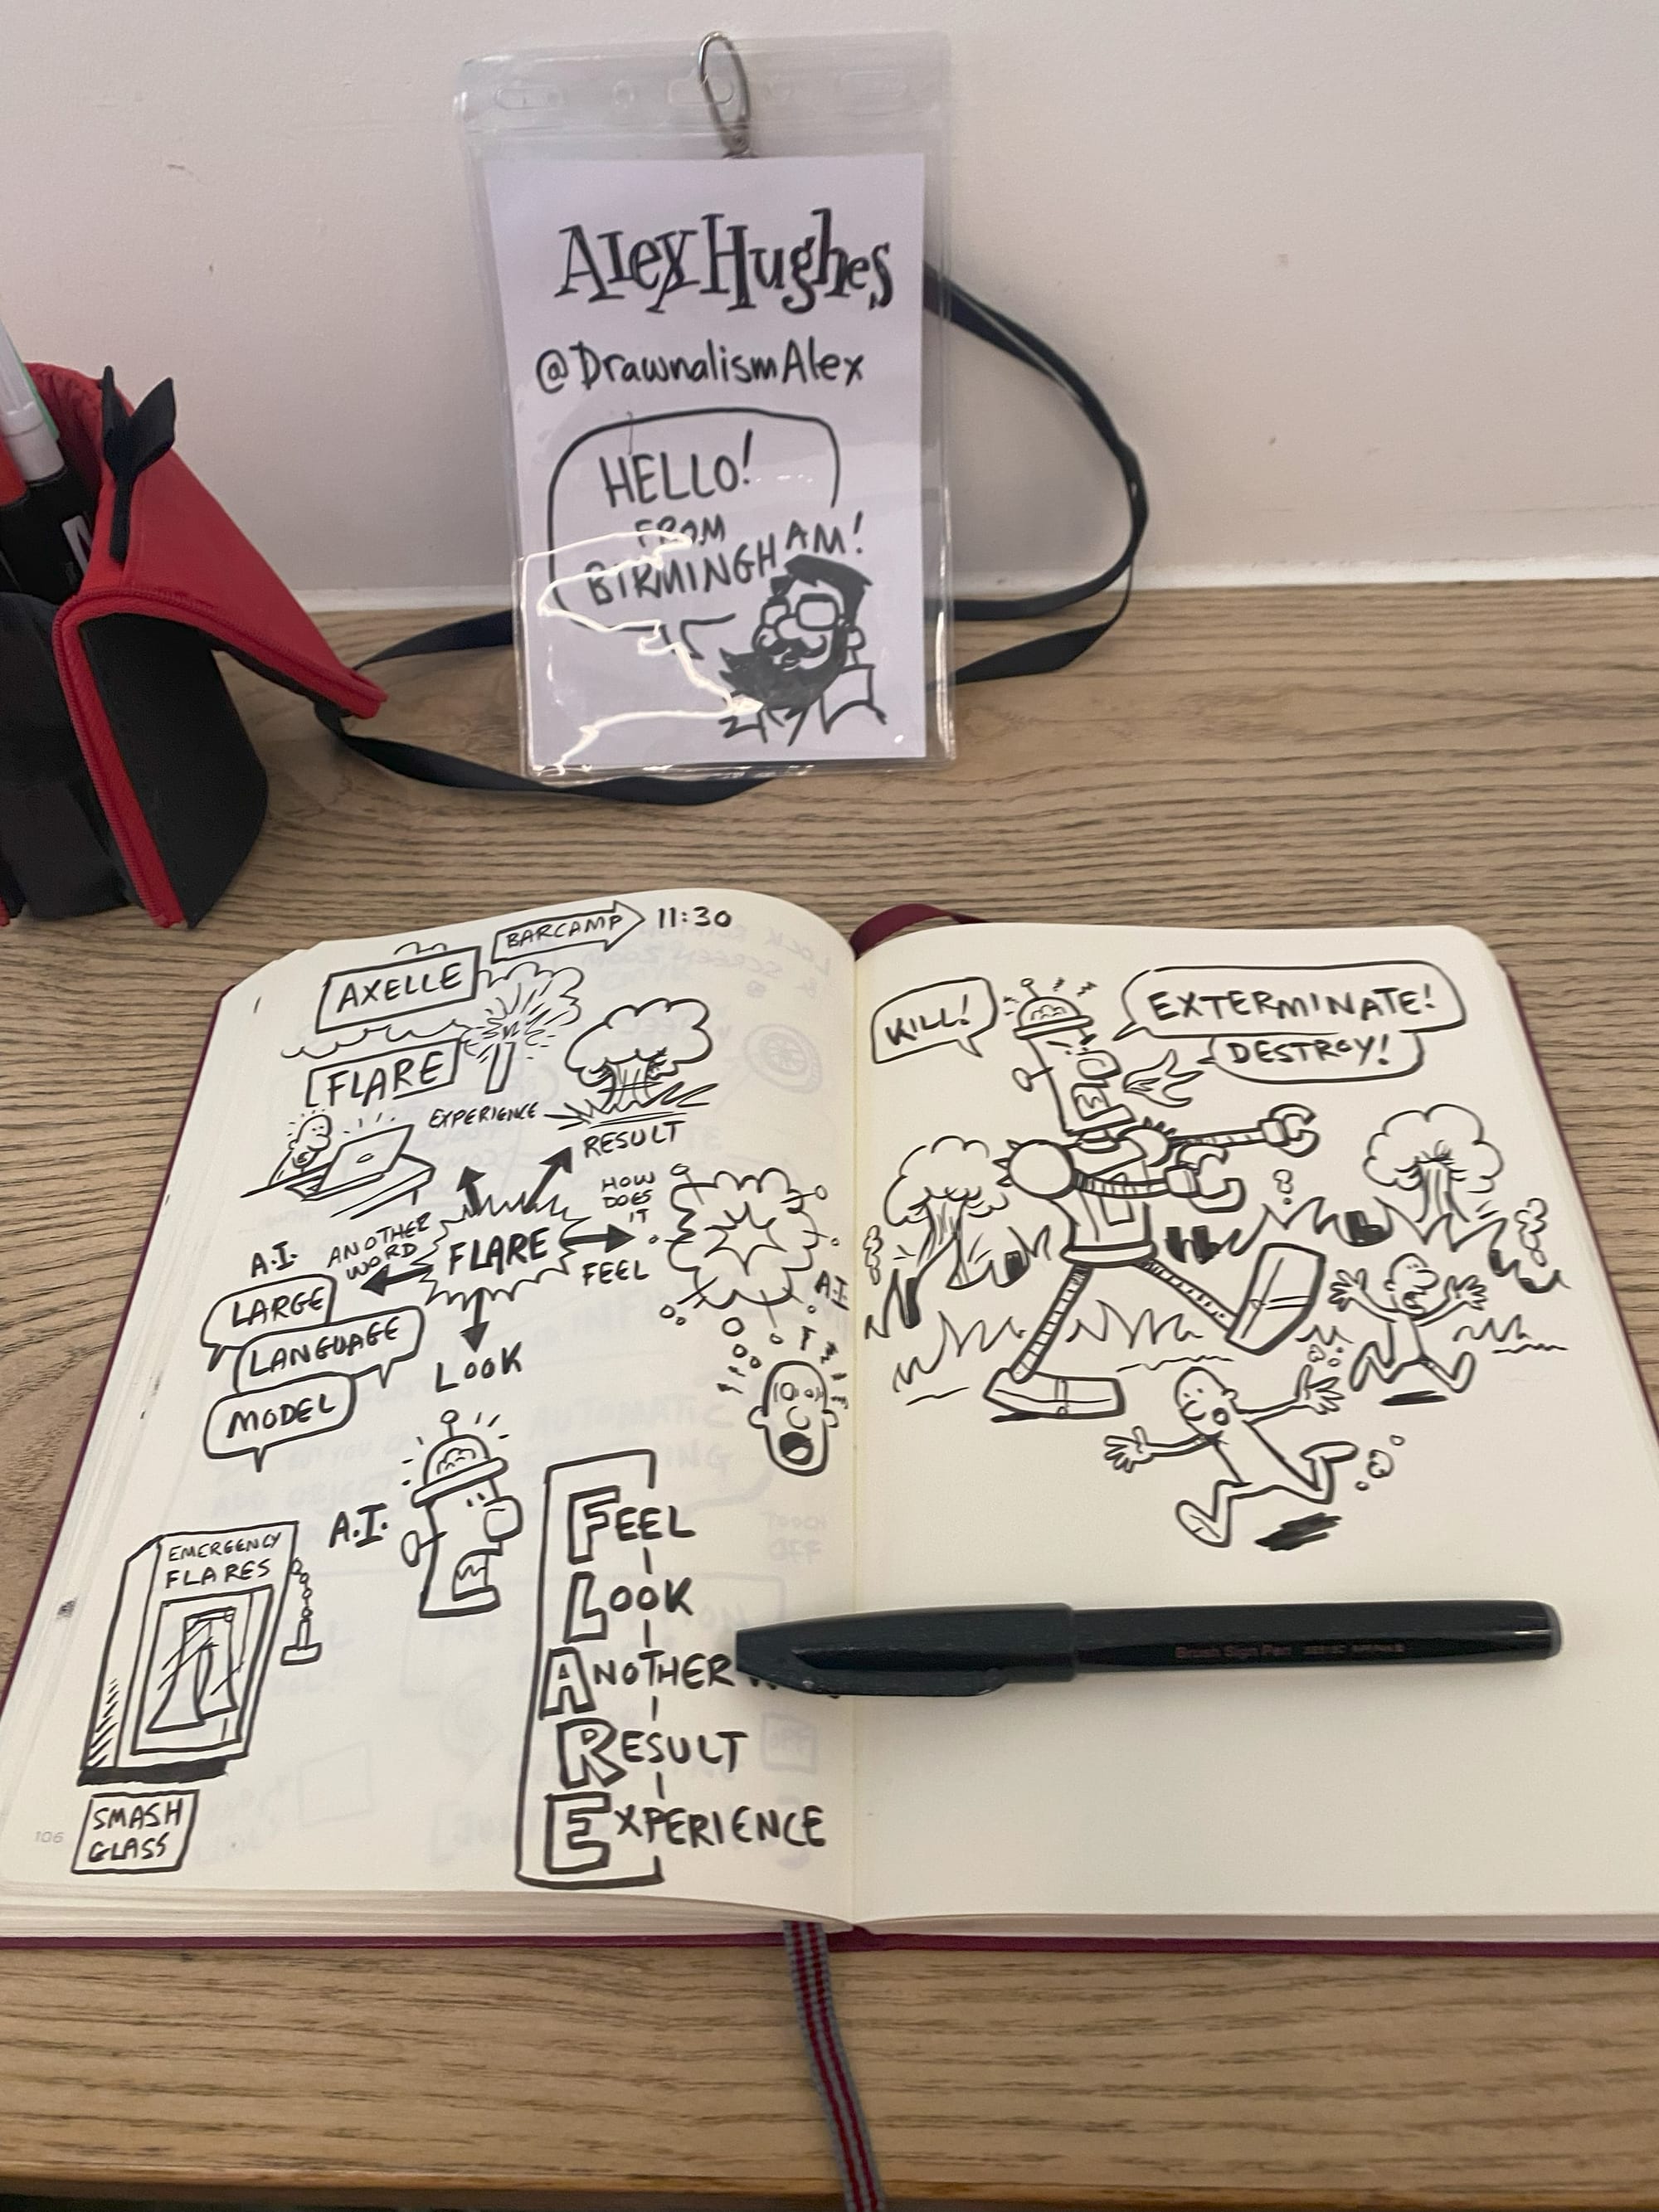 Alex Hughes
@DrawnalismAlex
HELLO!
FROM
BIRMINGHAM!
BARCAMP 11:30
AXELLE
FLARE
EXPERIENCE
RESULT
HOW
DOES
IT
FEEL
ANOTHER
WORD
FLARE
A.I.
LARGE
LANGUAGE
MODEL
LOOK
A.I.
A.I.
EMERGENCY
FLARES
SMASH
GLASS
FEEL
LOOK
ANOTHER
RESULT
EXPERIENCE
106
KILL!
EXTERMINATE!
DESTROY!
Brush Sign Pen